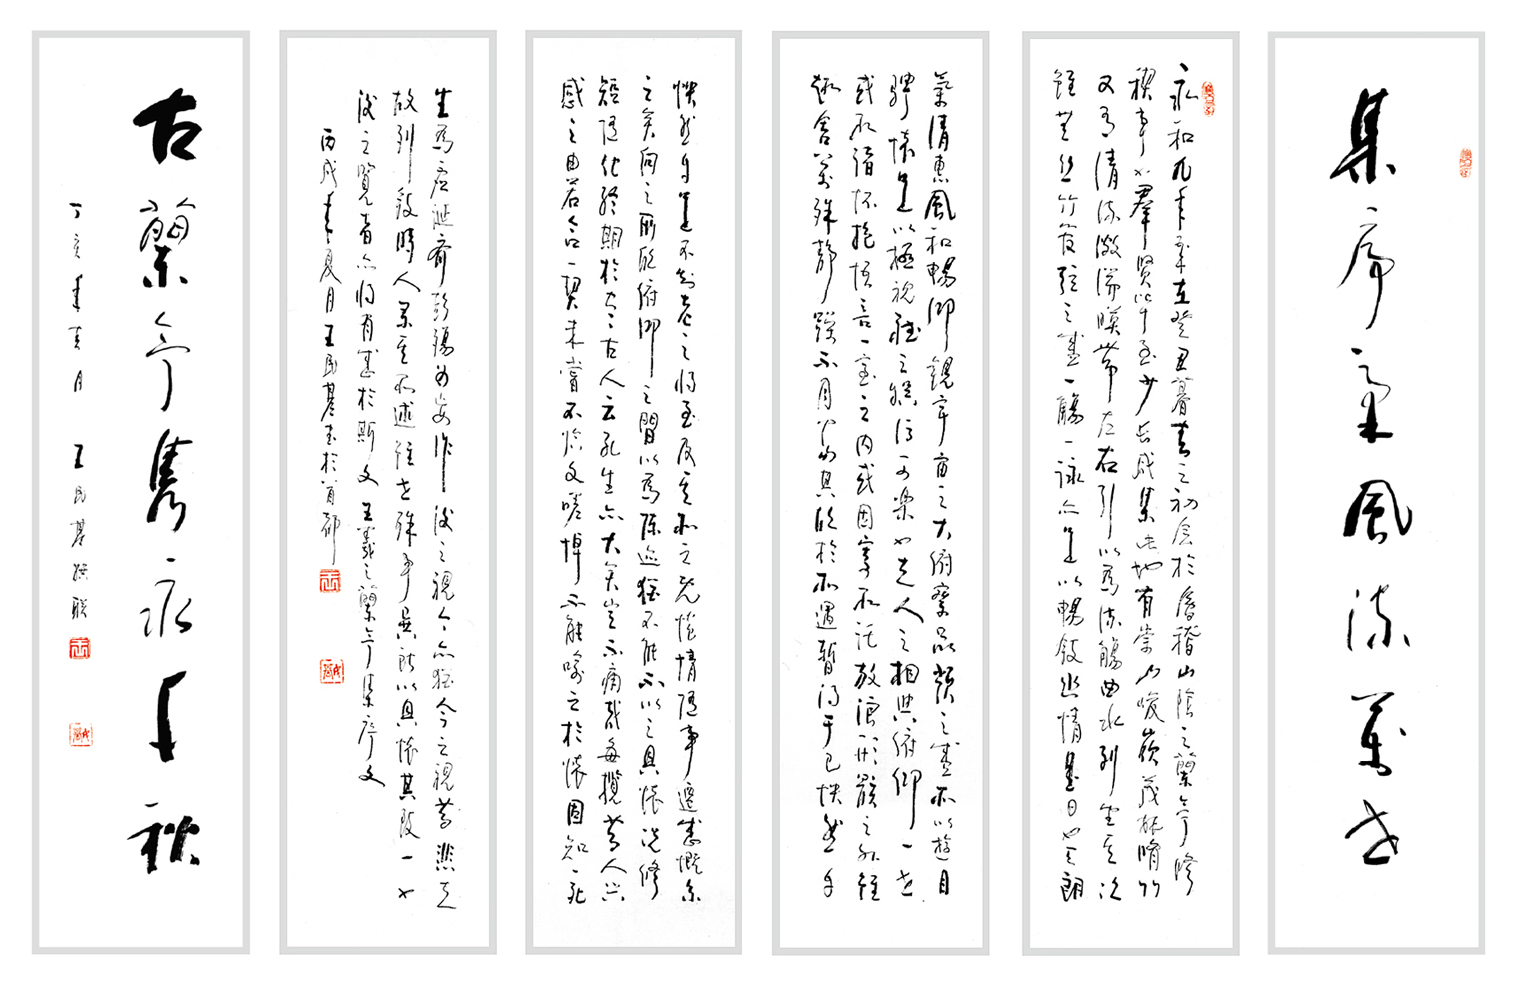 集序聖風流萬世
永和九年歲在癸丑暮春之初會於會稽山陰之蘭亭修
禊事也羣賢畢至少長咸集此地有崇山峻嶺茂林脩竹
又有清流激湍暎帶左右引以為流觴曲水列坐其次
雖無絲竹管弦之盛一觴一詠亦足以暢敘幽情是日也天朗
氣清惠風和暢仰觀宇宙之大俯察品類之盛所以遊目
騁懷足以極視聽之娛信可樂也夫人之相與俯仰一世
或取諸懷抱悟言一室之內或因寄所託放浪形骸之外雖
趣舍萬殊靜躁不同當其欣於所遇暫得于己快然自
快然自足不知老之將至及其所之既惓情隨事遷感慨係
之矣向之所欣俯仰之間以為陳迹猶不能不以之興懷況修
短隨化終期於盡古人云死生亦大矣豈不痛哉每攬昔人興
感之由若合一契未嘗不臨文嗟悼不能喻之於懷固知一死
生為虛誕齊彭殤為妄作後之視今亦猶今之視昔悲夫
故列敘時人錄其所述雖世殊事異所以興懷其致一也
後之覽者亦將有感於斯文 王羲之蘭亭集序文
丙戌春夏月王民基書於首都
古蘭亭雋永千秋
丁亥年 月 王民基撰聯